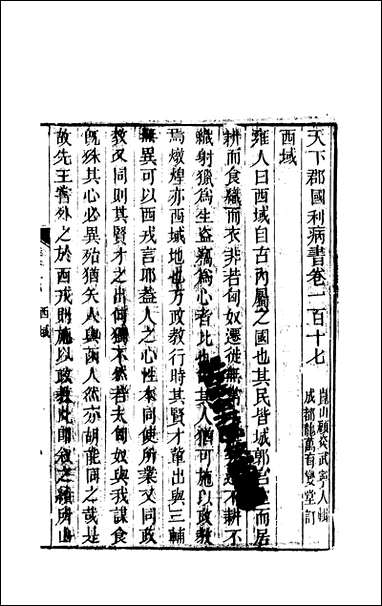 天下郡國利病書卷一百十七
崑山顧炎武寧人輯
成都龍萬育燮堂訂
西域
雍人曰西域自古內屬之國也其民皆城郭而居
耕而食織而衣非若匈奴遷徙無常不耕不
織射獵為生盜竊為心者比也故其人猶可施以政教
焉燉煌亦西域地也方政教行時其賢才輩出與三輔
無異可以西戎言耶葢人之心性本同使所業又同政
教又同則其賢才之出何獨不然若夫匈奴與我謀食
既殊其心必異殆猶矢人與函人然亦胡能同之哉是
故先王嘗外之於西戎則施以政教此即敘之績所
西域